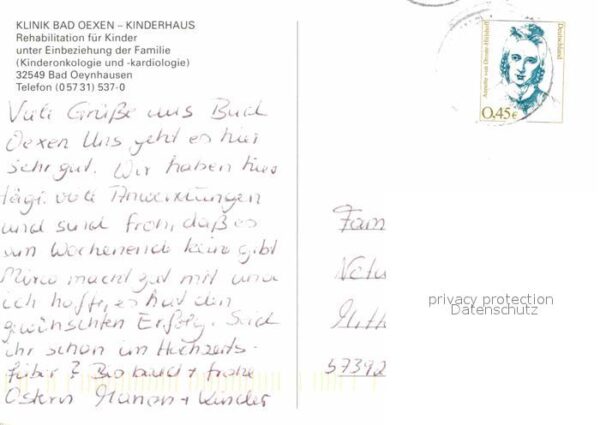 KLINIK BAD OEXEN – KINDERHAUS
Rehabilitation für Kinder
unter Einbeziehung der Familie
(Kinderonkologie und -kardiologie)
32549 Bad Oeynhausen
Telefon (05731) 537-0
Viele Grüße aus Bad
Oexen Uns geht es hier
sehr gut. Wir haben hier
tägl. viele Anwendungen
und sind froh, daß es
am Wochenende keine gibt
macht gut mit und
ich hoffe, es hat den
gewünschten Erfolg. Seid
ihr schon im Hochzeits-
fieber? Bis bald + frohe
Ostern Manon + Kinder
Annette von Droste-Hülshoff
Deutschland
0,45€
Fam
57392
privacy protection
Datenschutz